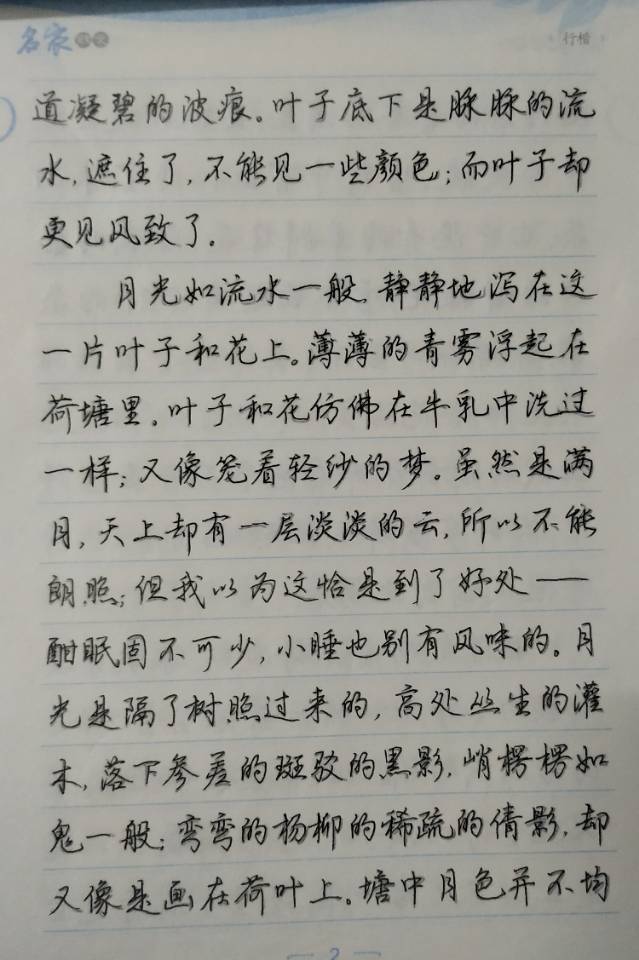 名家
行楷
道凝碧的波痕。叶子底下是脉脉的流
水,遮住了,不能见一些颜色;而叶子却
更见风致了。
月光如流水一般,静静地泻在这
一片叶子和花上。薄薄的青雾浮起在
荷塘里。叶子和花仿佛在牛乳中洗过
一样;又像笼着轻纱的梦。虽然是满
月,天上却有一层淡淡的云,所以不能
朗照;但我以为这恰是到了好处——
酣眠固不可少,小睡也别有风味的。月
光是隔了树照过来的,高处丛生的灌
木,落下参差的斑驳的黑影,峭楞楞如
鬼一般;弯弯的杨柳的稀疏的倩影,却
又像是画在荷叶上。塘中月色并不均
2